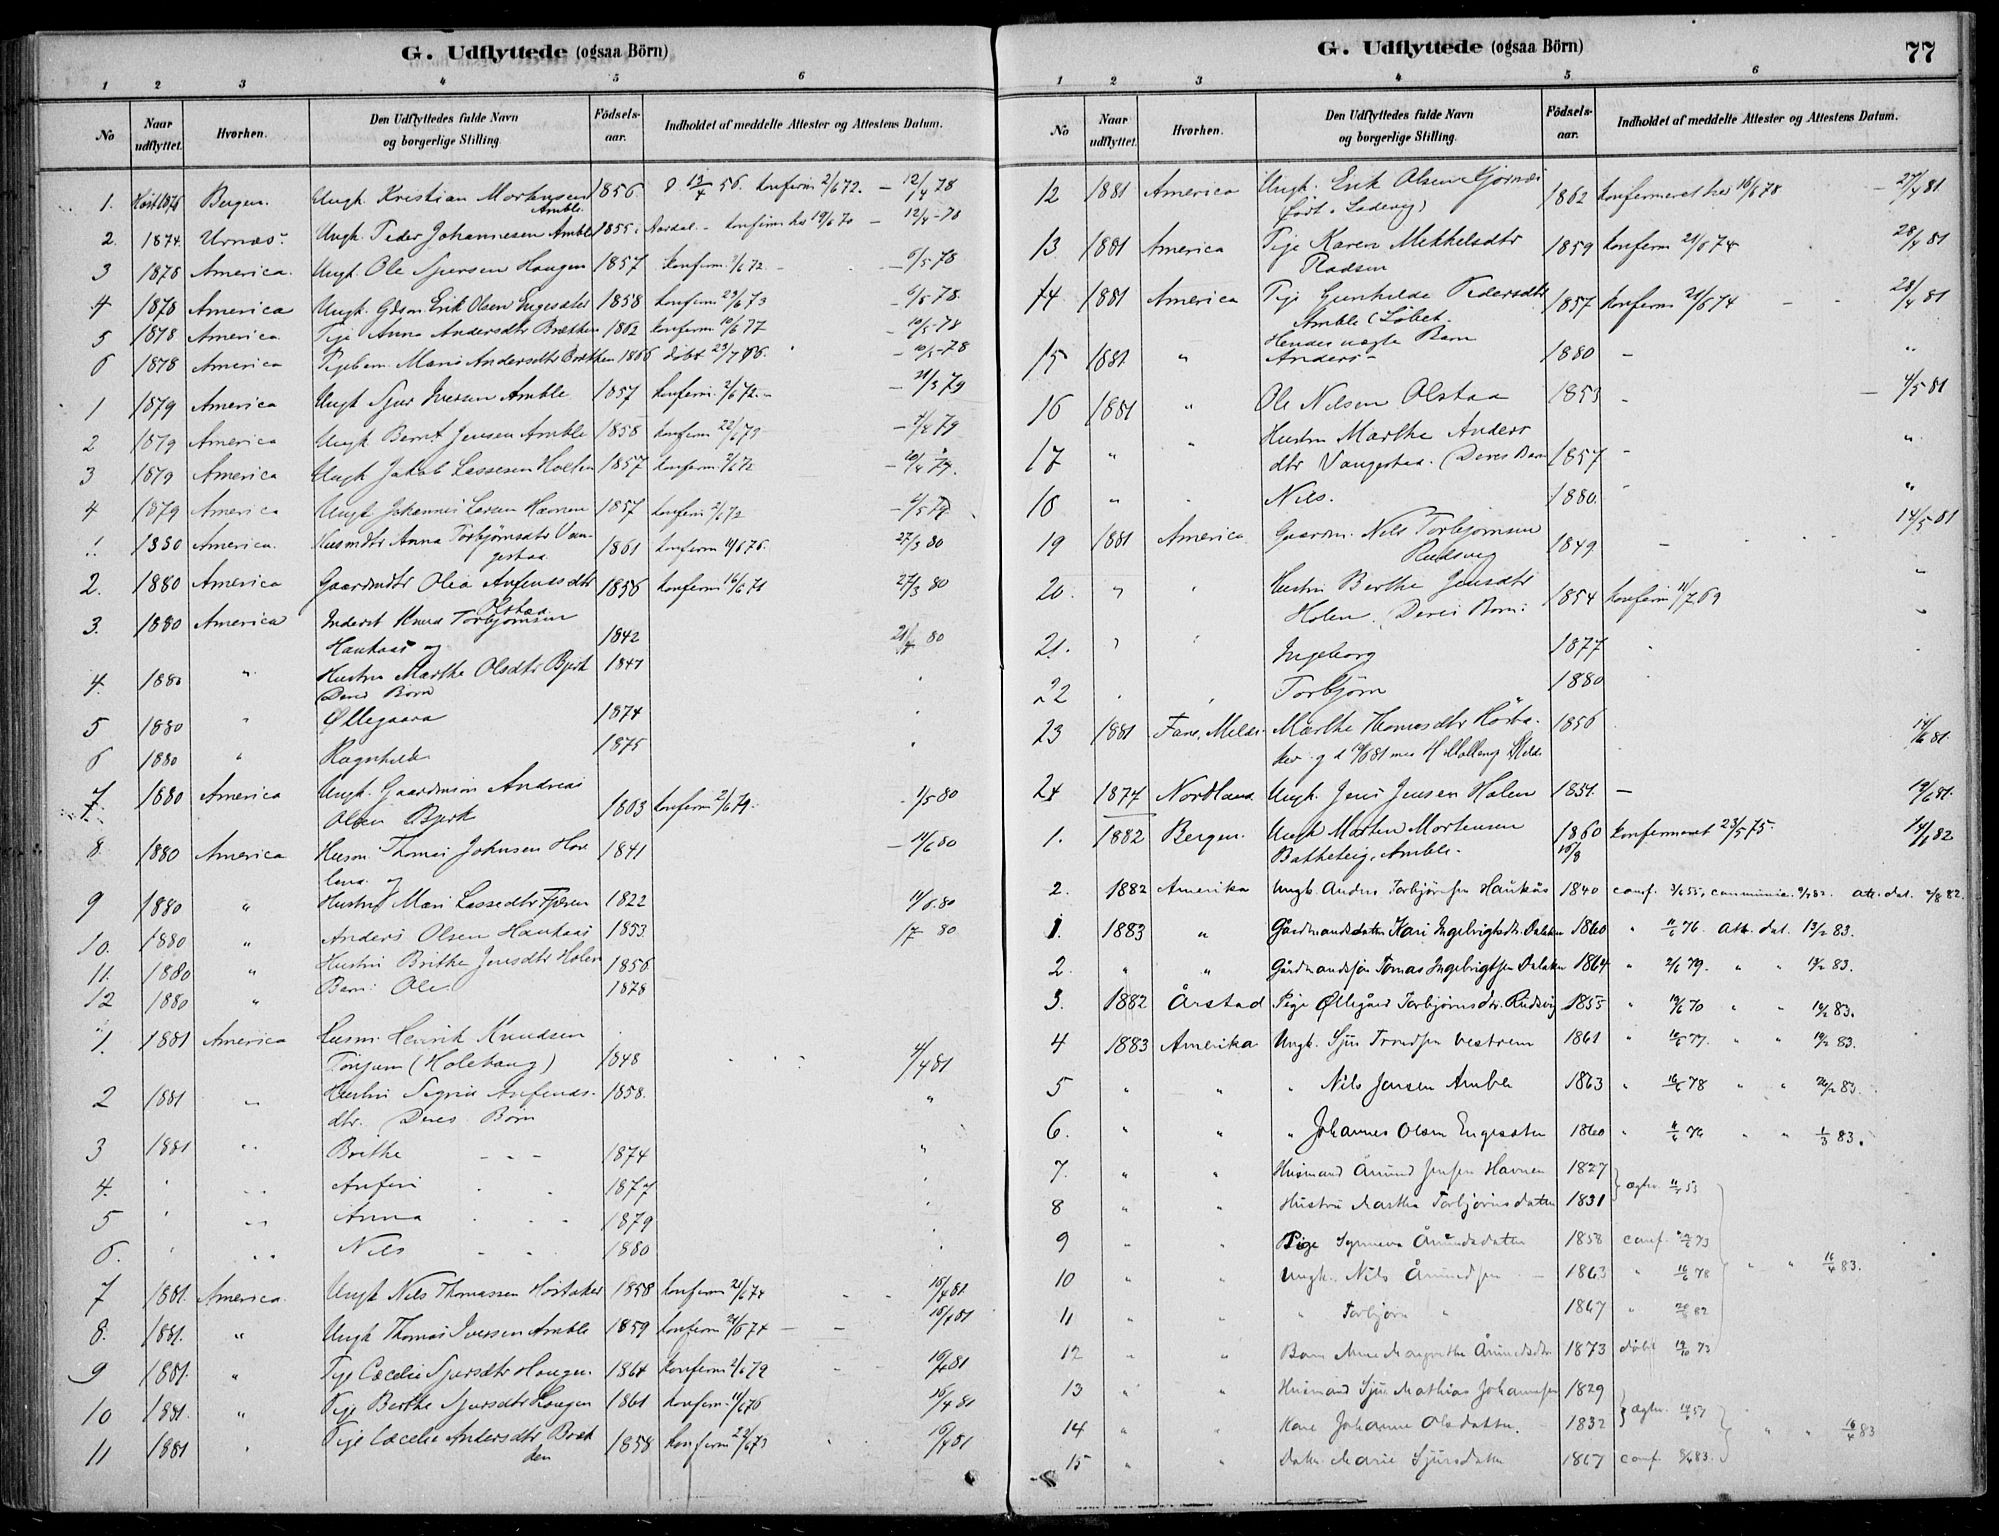 G. Udflyttede (ogsaa Börn)
1 2 3 4 5 6
No Naar udflyttet. Hvorhen. Den Udflyttedes fulde Navn og borgerlige Stilling. Födsels-aar. Indholdet af meddelte Attester og Attestens Datum.
1. Höst 1876 Bergen. Ungk. Kristian Mortensen 1856 13/4 56. Konfirm 2/6 72. — 12/4 78
Amble.
2. 1874. Urnæs. Ungk. Peder Johannesen Amble 1855 Aardal. - Konfirm her 19/6 70 — 12/4-78
3 1878 America. Ungk. Ole Sjursen Haugen 1857 Konfirm. 2/6 72 — 6/5 78
4 1878 America Ungk. Gdsm Erik Olsen Engesæter 1858 Konfirm 29/6 73 — 6/5-78.
5 1878 America. Pige Anna Andersdtr Brækken 1862 Konfirm 10/6 77 — 10/5-78
6 1878 America Pigebarn. Maris Andersdtr Brækken 1866 döbt 23/7 66. — 10/5-78
1 1879 America Ungk Sjur Iversen Amble 1857 Konfirm. 2/6 72. — 21/3 79
2 1879 America Ungk Bernt Jensen Amble 1858 Konfirm 22/6 73
3 1879 America Ungk Jakob Lassesen Holten 1857 Konfirm 2/6 72
4 1879 America Ungk Johannes Larsen Havnen 1857 Konfirm 2/6 72
1. 1880 America. Husmdtr Anna Torbjörnsdtr Van-
gestaa. 1861 Konfirm 11/6 76. 27/3 80
2. 1880 America Gaardmdtr Olea Anfinsdtr 1856 Konfirm 27/3 80
Olstaa.
3. 1880 America Inderst Knud Torbjörnsen
Haukaas og 1842 80
4. 1880 " Hustru Marthe Olsdtr Bjerk 1847
Deres Börn
5 1880 " Öllegaara 1874
6 1880 " Ragnhilde 1875
7. 1880 America Ungk. Gaardmsön Andreas
Olsen Bjerk 1863 Konfirm 2/6 79. — 1/5 80
8. 1880 America Husm. Thomas Johnsen Hov 1841 — 11/6 80
land og
9 1880 " Hustru Mari Lassedtr Fjæren 1822 11/6.80
10. 1880 " Anders Olsen Haukaas 1853 80
11. 1880 " Hustru Brithe Jensdtr Holen 1856
12 1880 " Barn: Ole. 1878
1. 1881 America Husm. Henrik Knudsen
Tönjum (Holehaug) 1848 4/4 81
2 1881 " Hustru Sigrid Anfinds- 1858.
dtr. (Deres Börn
3 1881 " Brithe - - - 1874
4. Anfin 1877
5 Anna 1879
6. Nils 1880
7 1881. America. Ungk Nils Thomassen Hörtaker 1858 Konfirm 21/6 74 16/4 81.
8. 1881. " Ungk Thomas Iversen Amble 1859 Konfirm 21/6 74 — — 16/4 81
9 1881. " Pige Cæcelie Sjursdtr Haugen. 1864 Konfirm 2/6 79 16/4 81
10 1881. " Pige Berthe Sjursdtr Haugen 1861 Konfirm. 11/6 76 16/4 81
11 1881 " Pige Cæcelie Andersdtr Bræk 1858 Konfirm 29/6 73 16/4 81
ken
G. Udflyttede (ogsaa Börn) 77
1 2 3 4 5 6
No Naar udflyttet. Hvorhen. Den Udflyttedes fulde Navn og borgerlige Stilling. Födsels-aar. Indholdet af meddelte Attester og Attestens Datum.
12 1881 America Ungk. Erik Olsen Gjörnæs 1862 Konfirmeret her 16/6 78 — 27/4 81
(född i Ladevig)
13. 1881 America Pige Karen Mikkelsdtr 1859 Konfirm 21/6 74 28/4 81
14 1881 America Pige Gunhilde Pedersdtr 1857 Konfirm 21/6 74 28/4 81
Amble
Hendes uægte Barn
15 1881 " Anders- 1880 — "
16 1881 " Ole Nilsen Olstaa 1853 — 4/5 81
Hustru Marthe Anders
17 " dtr Vangestaa. (Deres Barn 1857 — "
18 " Nils. 1880. "
19 1881 America Gaardm. Nils Torbjörnsen 14/5 81
Rudsvig 1849 —
20. " Hustru Berthe Jensdtr
Holen. Deres Börn: 1854 Konfirm 11/7 69
21. Ingeborg 1877
22 Torbjörn 1880
23 1881 Fane, Melde Marthe Thomasdtr Hörta- 1856 14/6 81.
24 1874 Nordland Ungk. Jens Jensen Holen 1851. — 19/6 81.
1. 1882 Bergen. Ungk Morten Mortensen 1860 Konfirmeret 23/5 75. 14/4 82
Bakketeig, Amble.
2. 1882 Amerika Ungk. Anders Torbjörnsen Haukås 1840 conf.
1. 1883 " Gårdmandsdatter Kari Ingebrigtsdtr. Dalaker 1860 " 11/6 76. att. dat. 13/2 83.
2. " " Gårdmandssön Tomas Ingebrigtsen Dalaker 1864 " 2/6 79. " " 13/2 83.
3. 1882 Årstad Pige Öllegård Torbjörnsdtr. Rudsvig 1855 " 19/6 70 " " 16/2 83.
4 1883 Amerika Ungk. Sjur Trondsen Vestrem 1861 " 10/6 77. " " 19/2 83.
5 " " " Nils Jensen Amble 1863 " 16/6 78 " " 26/2 83.
6. " " " Johannes Olsen Engesæter 1860 " 11/6 76 " " 1/3 83.
7. " " Husmand Åmund Jensen Havnen 1827
8 " " Hustru Martha Torbjörnsdatter 1831 } ægtev. 53
9 " " Pige Synneva Åmundsdatter 1858 conf. 73
10 " " Ungk. Nils Åmundsen — 1863 " 16/6 78 " " 16/4 83.
11 " " " Torbjörn " 1867 " 82
12 " " Barn Anne Margrethe Åmundsdtr 1873 döbt 19/10 73
13 " " Husmand Sjur Mathias Johannesen 1829
14 " " Kone Johanne Olsdatter. — 1832 } ægtev. " " 16/4 83
15 " " Datter Marie Sjursdatter 1867 conf.